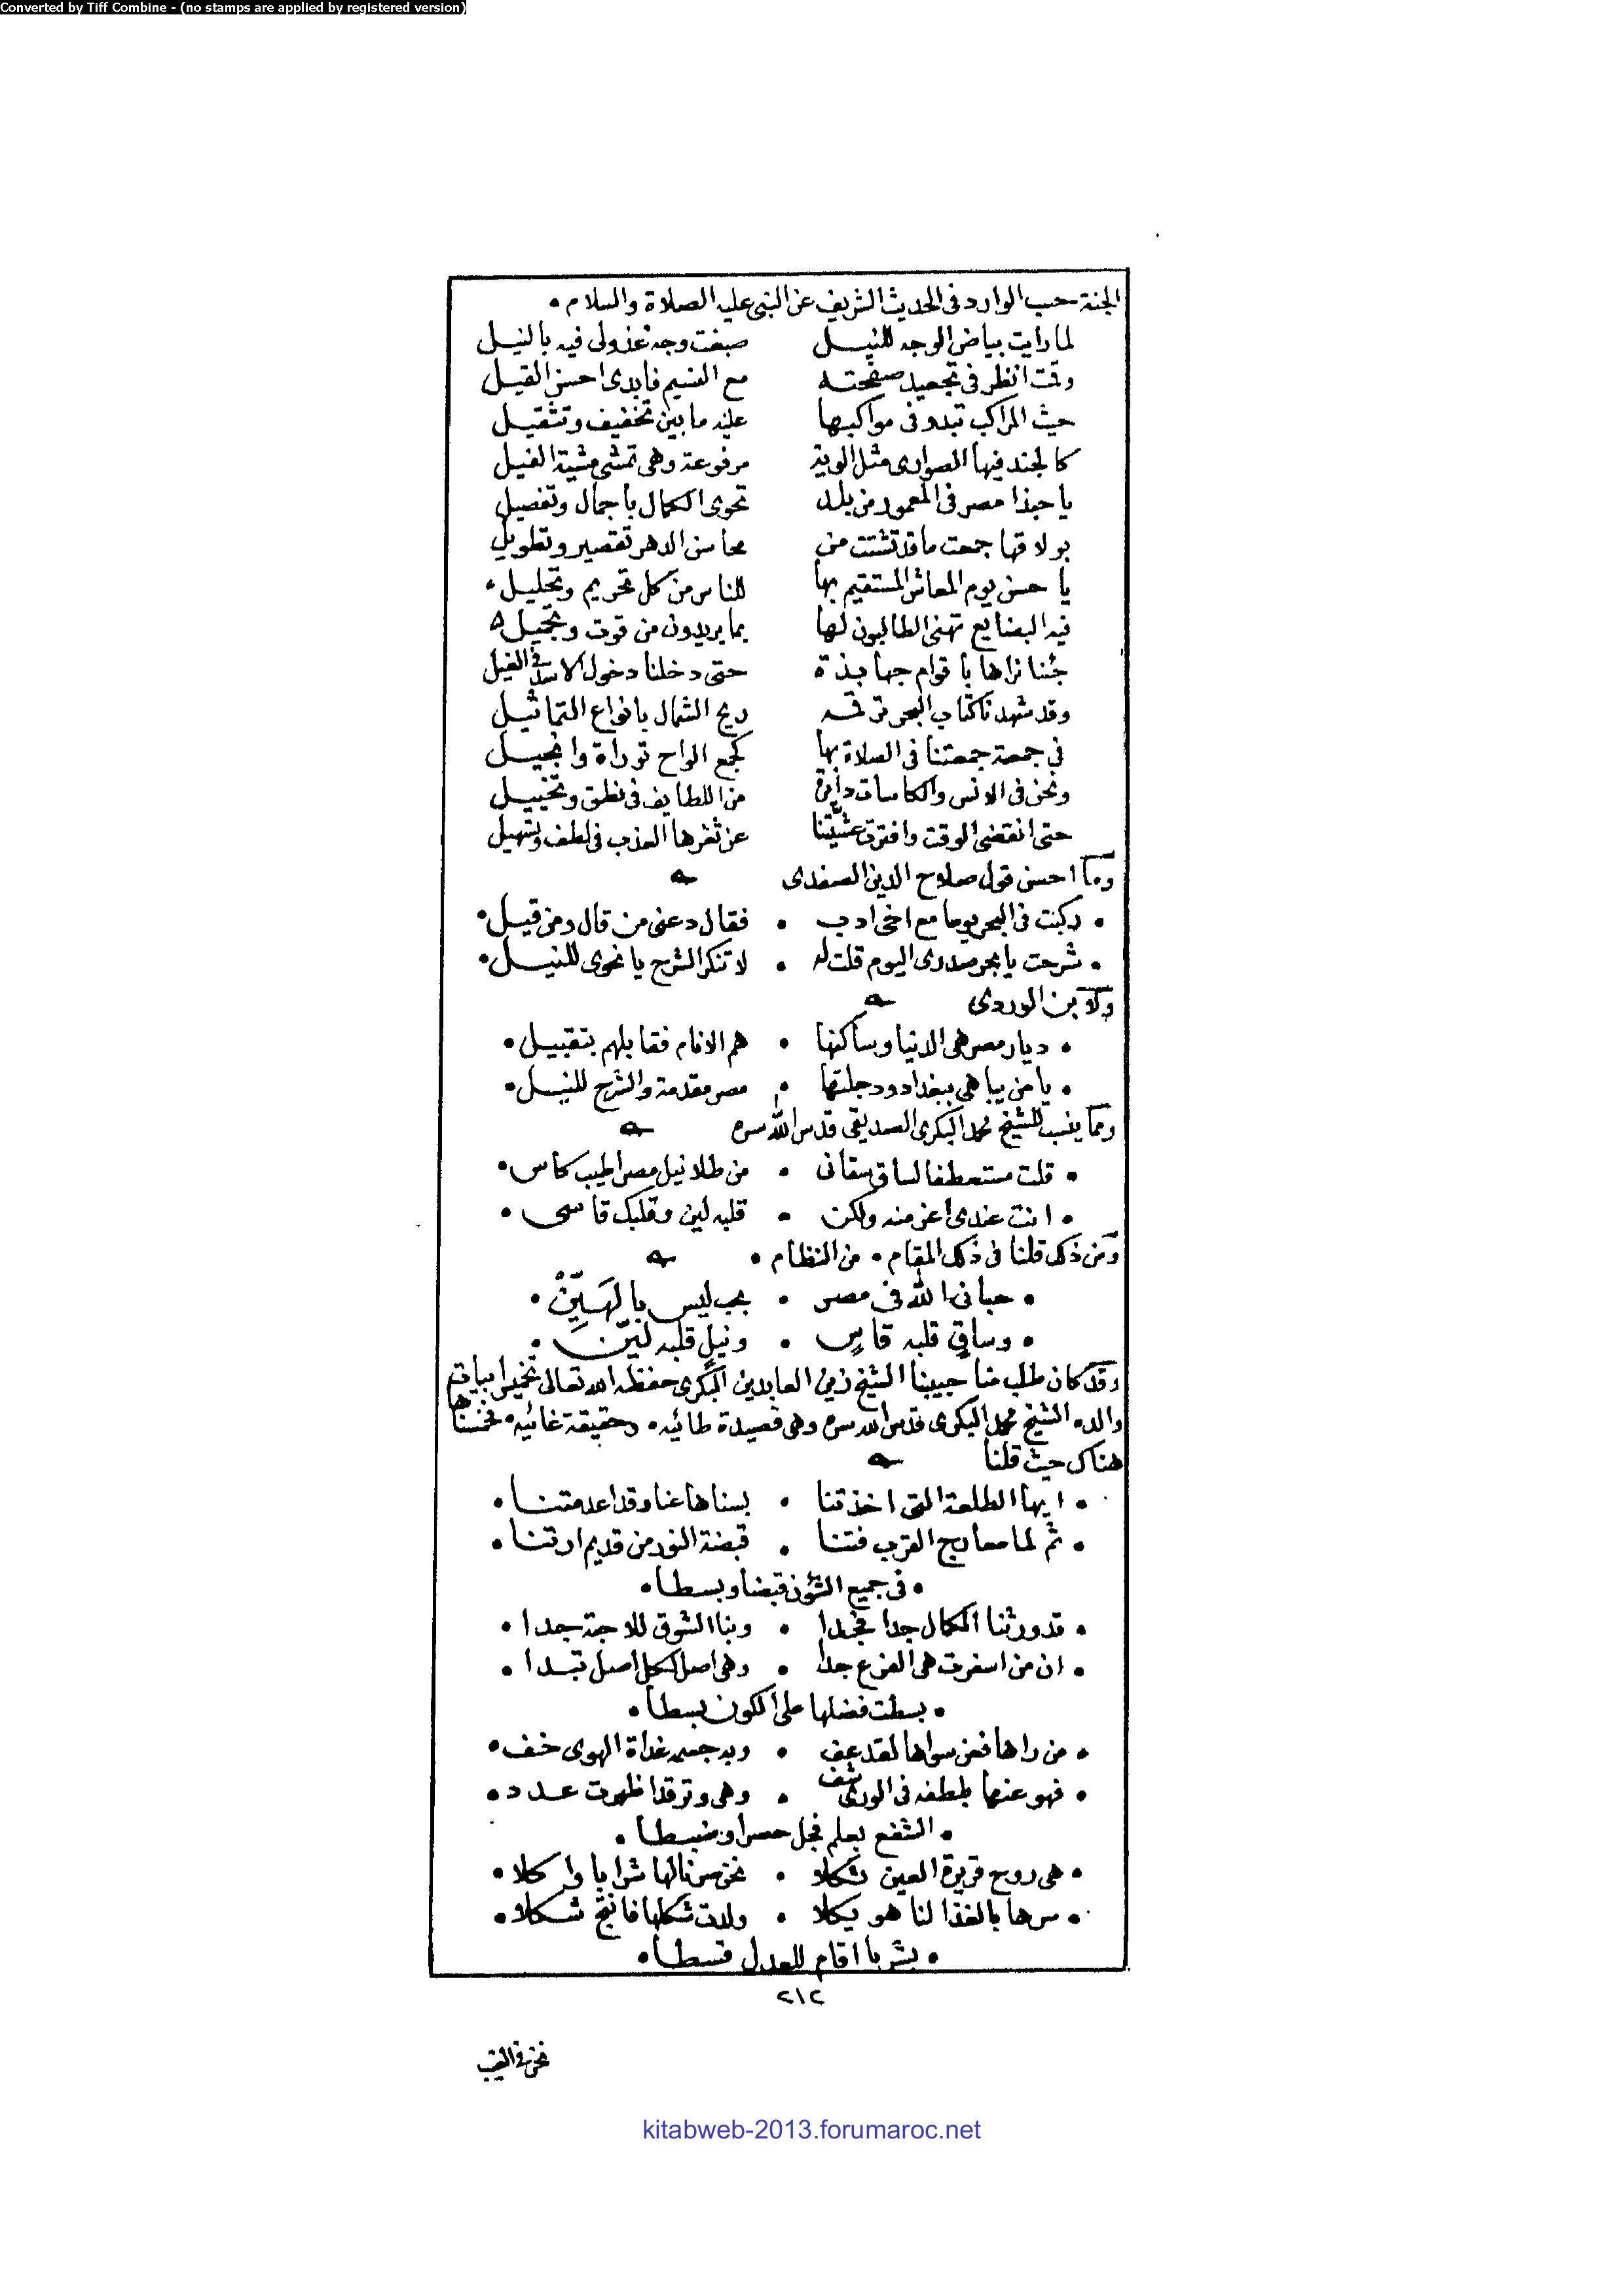 Converted by Tiff Combine - (no stamps are applied by registered version)
الجنة حسب الوارد فى الحديث الشريف عن النبى عليه الصلاة والسلام •
لما رايت بياض الوجه للنيل صبغت وجه عذولى فيه بالنيل
وقت انظر فى تجعيد صفحته مع النسيم فابدى احسن القيل
حيث المراكب تبدو فى مواكبها عليه ما بين تخفيف وتثقيل
كالجند فيها الصوارى مثل الوية مرفوعة وهى تمشى مشية الفيل
يا حبذا مصر فى المعمور من بلد تحوى الكمال باجمال وتفصيل
بولاقها جمعت ما قد تشتت من محاسن الدهر تقصير وتطويل
يا حسن يوم المعاش المستقيم بها للناس من كل تحريم وتحليل
فيه البضايع تهنى الطالبون لها بما يريدون من قوت وتجميل
جئنا نراها باقوام جهابذة حتى دخلنا دخول الاسد فى الغيل
وقد شهدنا كتاب البحر ترقمه ريح الشمال بانواع التماثيل
فى جمعة جمعتنا فى الصلاة بها كجمع الواح توراة وانجيل
ونحن فى الانس والكاسات دايرة من اللطايف فى نطق وتخييل
حتى انقضى الوقت وافترت عشيتنا عن ثغرها العذب فى لطف وتسهيل
وما احسن قول صلاح الدين الصفدى
• ركبت فى البحر يوما مع اخى ادب • فقال دعنى من قال ومن قيل •
• شرحت يا بحر صدرى اليوم قلت له • لا تنكر الشرح يا نحوى للنيل •
ولابن الوردى
• ديار مصر هى الدنيا وساكنها • هم الانام فقابلهم بتقبيل •
• يا من يباهى ببغداد ودجلتها • مصر مقدمة والشرح للنيل •
ومما ينسب للشيخ محمد البكرى الصديقى قدس الله سره
• قلت مستعطفا لساق سقانى • من طلا نيل مصر اطيب كاس •
• انت عندى اعز منه ولكن • قلبه لين وقلبك قاسى •
ومن ذلك قلنا فى ذلك المقام • من النظام •
• حبانى الله فى مصر • بحب ليس بالهَيِّنْ •
• وساقٍ قلبه قاسٍ • ونيل قلبه لَيِّن •
وقد كان طلب منا حبيبنا الشيخ زين العابدين البكرى حفظه الله تعالى تخميس ابيات
والده الشيخ محمد البكرى قدس الله سره وهى قصيدة طائيه • وحقيقة غائيه • فخمسناها
هناك حيث قلنا
• ايها الطلعة التى اخذتنا • بسناها عنا وقد اعدمتنا •
• ثم لما معارج القرب فتنا • قبضة النور من قديم ارتنا •
• فى جميع الشؤن قبضا وبسطا •
• قد ورثنا الكمال جدا فجدا • وبنا الشوق للاحبة جدا •
• ان من اسفرت هى الفرع جدا • وهى اصل لكل اصل تبدا •
• بسطت فضلها على الكون بسطا •
• من راها فعن سواها لقد عف • وبه جسمه غداة الهوى خف •
• فهو عنها بلطفه فى الورى شف • وهى وتر قد اظهرت عدد •
• الشفع بعلم فجل حصرا وضبطا •
• هى روح قريرة العين شكلا • نحن سرنا لها شرابا واكلا •
• سرها بالغذا لنا هو يكلا • ولدت شكلها فانتج شكلا •
• بشرا اقام للعدل قسطا •
٢١٢
نحن فى الغيب
kitabweb-2013.forumaroc.net